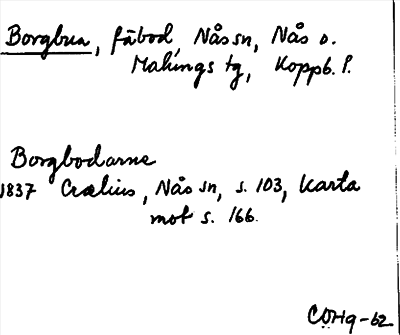 Borgbua, fäbod, Nås sn, Nås o.
Malungs tg, Koppb. l.
Borgbodarne
1837 Crælius, Nås sn, s. 103, Karta
mot s. 166.
COHq-62